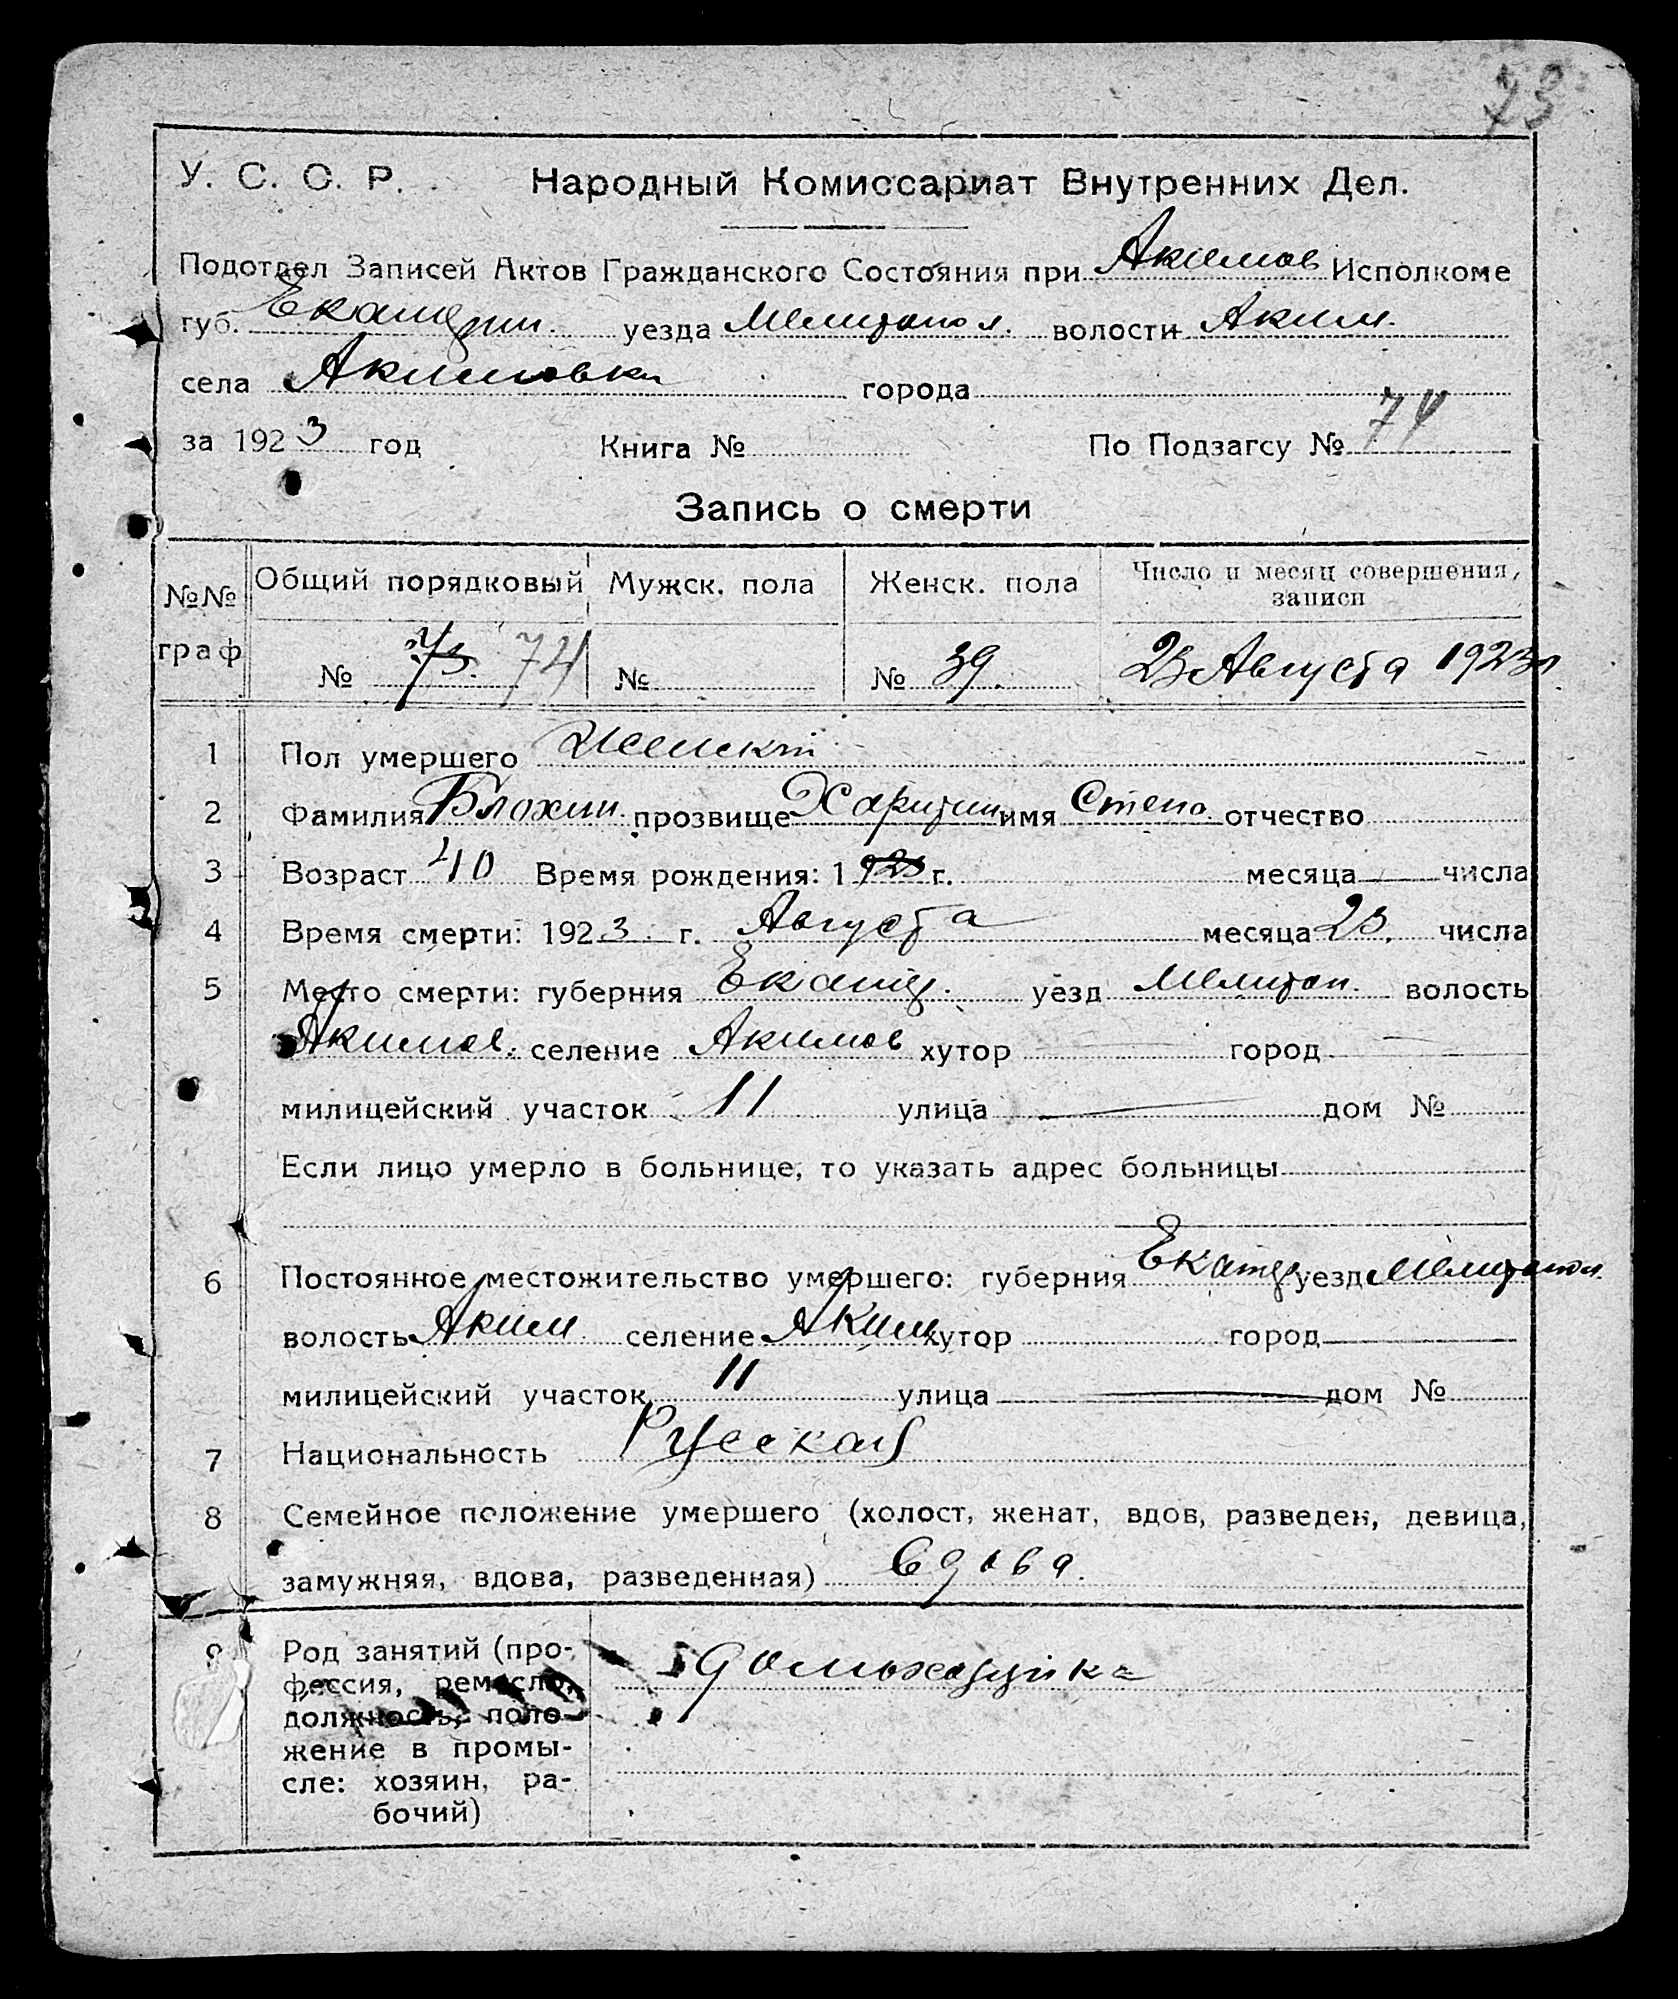 73
У. С. С. Р. Народный Комиссариат Внутренних Дел.
Подотдел Записей Актов Гражданского Состояния при Акимов Исполкоме
губ. Екатерин. уезда Мелитопол. волости Аким.
села Акимовка города
за 1923 год Книга № По Подзагсу № 74
Запись о смерти
№№ граф Общий порядковый Мужск. пола Женск. пола Число и месяц совершения, записи
№ 73. 74 № № 39. 23 Августа 1923г.
1 Пол умершего Женский
2 Фамилия Блохин. прозвище Харитин имя Степа. отчество
3 Возраст 40 Время рождения: 1923 г. месяца числа
4 Время смерти: 1923 г. Августа месяца 23. числа
5 Место смерти: губерния Екатер. уезд Мелитоп. волость
Акимов. селение Акимов хутор город
милицейский участок 11 улица дом №
Если лицо умерло в больнице, то указать адрес больницы
6 Постоянное местожительство умершего: губерния Екатер уезд Мелитопол.
волость Аким селение Аким хутор город
милицейский участок 11 улица дом №
7 Национальность Русская
8 Семейное положение умершего (холост, женат, вдов, разведен, девица,
замужняя, вдова, разведенная) вдова.
9 Род занятий (про-
фессия, ремесло,
должность, поло-
жение в промы-
сле: хозяин, ра-
бочий)